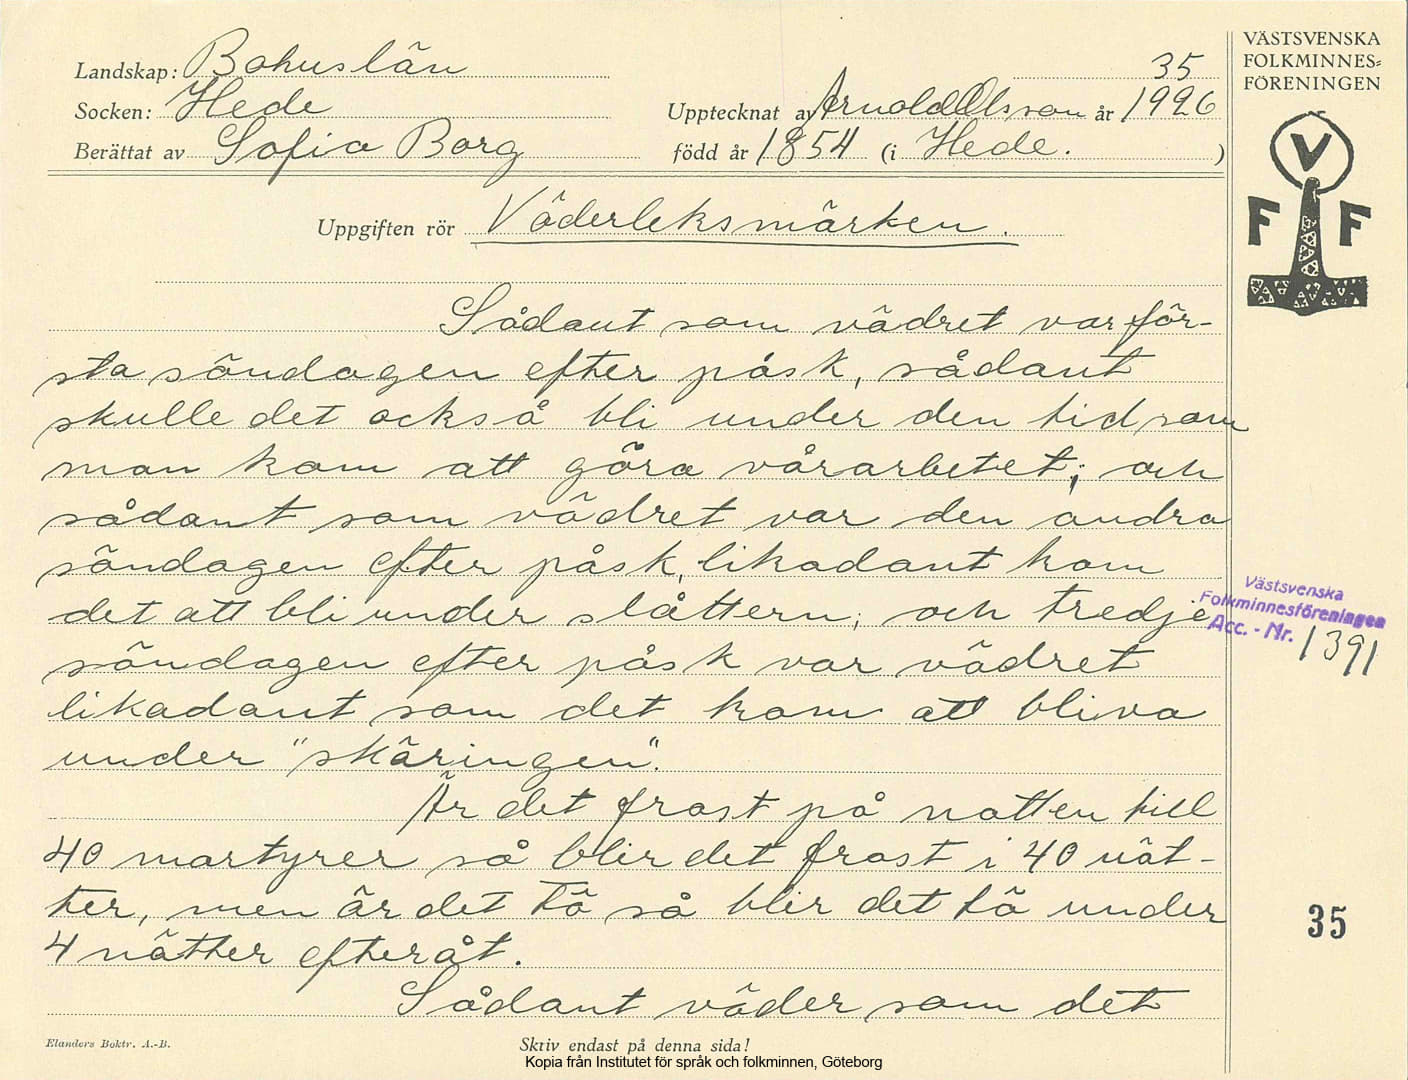 Landskap: Bohuslän
35
Socken: Hede
Upptecknat av Arnold Olsson år 1926
Berättat av Sofia Borg
född år 1854 (i Hede. )
VÄSTSVENSKA
FOLKMINNES=
FÖRENINGEN
V
F F
Uppgiften rör Väderleksmärken.
Sådant som vädret var för-
sta söndagen efter påsk, sådant
skulle det också bli under den tid som
man kom att göra vårarbetet; och
sådant som vädret var den andra
söndagen efter påsk, likadant kom
det att bli under slåttern; och tredje
söndagen efter påsk var vädret
likadant som det kom att bliva
under "skäringen".
Är det frost på natten till
40 martyrer så blir det frost i 40 nät-
ter, men är det tö så blir det tö under
4 nätter efteråt.
Sådant väder som det
Västsvenska
Folkminnesföreningen
Acc. - Nr. 1391
35
Elanders Boktr. A.-B.
Skriv endast på denna sida!
Kopia från Institutet för språk och folkminnen, Göteborg